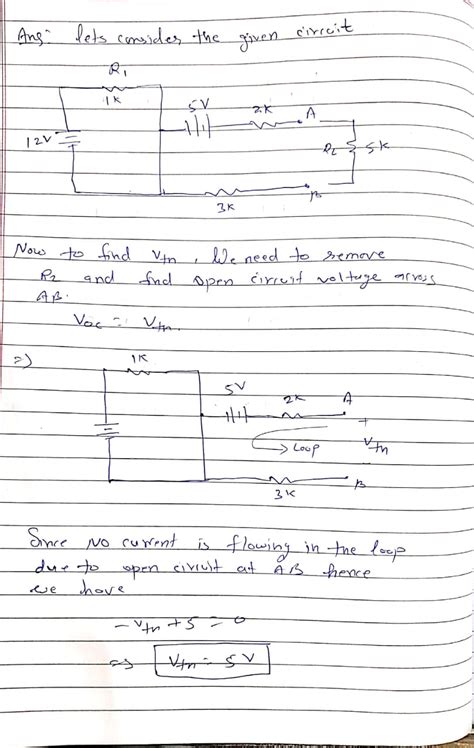 Ans:- lets consider the given circuit
R1
1K
5V
2K
A
12V
R2
5K
B
3K
Now to find Vtn, We need to remove
R2 and find open circuit voltage across
AB.
Voc = Vtn.
=>
1K
5V
2K
A
+
Vtn
Loop
B
3K
Since No current is flowing in the loop
due to open circuit at AB hence
we have
-Vtn + 5 = 0
=> Vtn = 5V